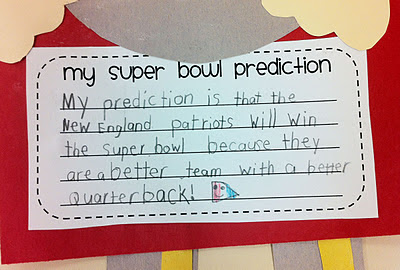 my super bowl prediction
My prediction is that the
New England patriots will win
the super bowl because they
are a better team with a better
quarterback!